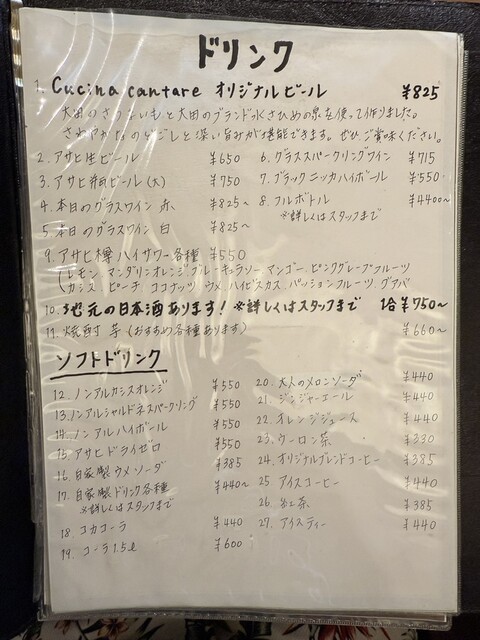 ドリンク
1. Cucina cantare オリジナルビール ¥825
大田のさつまいもと大田のブランド水さひめの泉を使って作りました。
さわやかなのどごしと深い旨みが堪能できます。ぜひご賞味ください。
2. アサヒ生ビール ¥650
3. アサヒ瓶ビール(大) ¥750
4. 本日のグラスワイン 赤 ¥825~
5. 本日のグラスワイン 白 ¥825~
6. グラススパークリングワイン ¥715
7. ブラックニッカハイボール ¥550
8. フルボトル ¥4400~
※詳しくはスタッフまで
9. アサヒ樽ハイサワー各種 ¥550
(レモン、マンダリンオレンジ、ブルーキュラソー、マンゴー、ピンクグレープフルーツ
カシス、ピーチ、ココナッツ、ウメ、ハイビスカス、パッションフルーツ、グアバ
10. 地元の日本酒あります! ※詳しくはスタッフまで 1合 ¥750~
11. 焼酎 芋 (おすすめ各種あります) ¥660~
ソフトドリンク
12. ノンアルカシスオレンジ ¥550
13. ノンアルシャルドネスパークリング ¥550
14. ノンアルハイボール ¥550
15. アサヒドライゼロ ¥550
16. 自家製ウメソーダ ¥385
17. 自家製ドリンク各種 ¥440~
※詳しくはスタッフまで
18. コカコーラ ¥440
19. コーラ1.5ℓ ¥600
20. 大人のメロンソーダ ¥440
21. ジンジャーエール ¥440
22. オレンジジュース ¥440
23. ウーロン茶 ¥330
24. オリジナルブレンドコーヒー ¥385
25. アイスコーヒー ¥440
26. 紅茶 ¥385
27. アイスティー ¥440